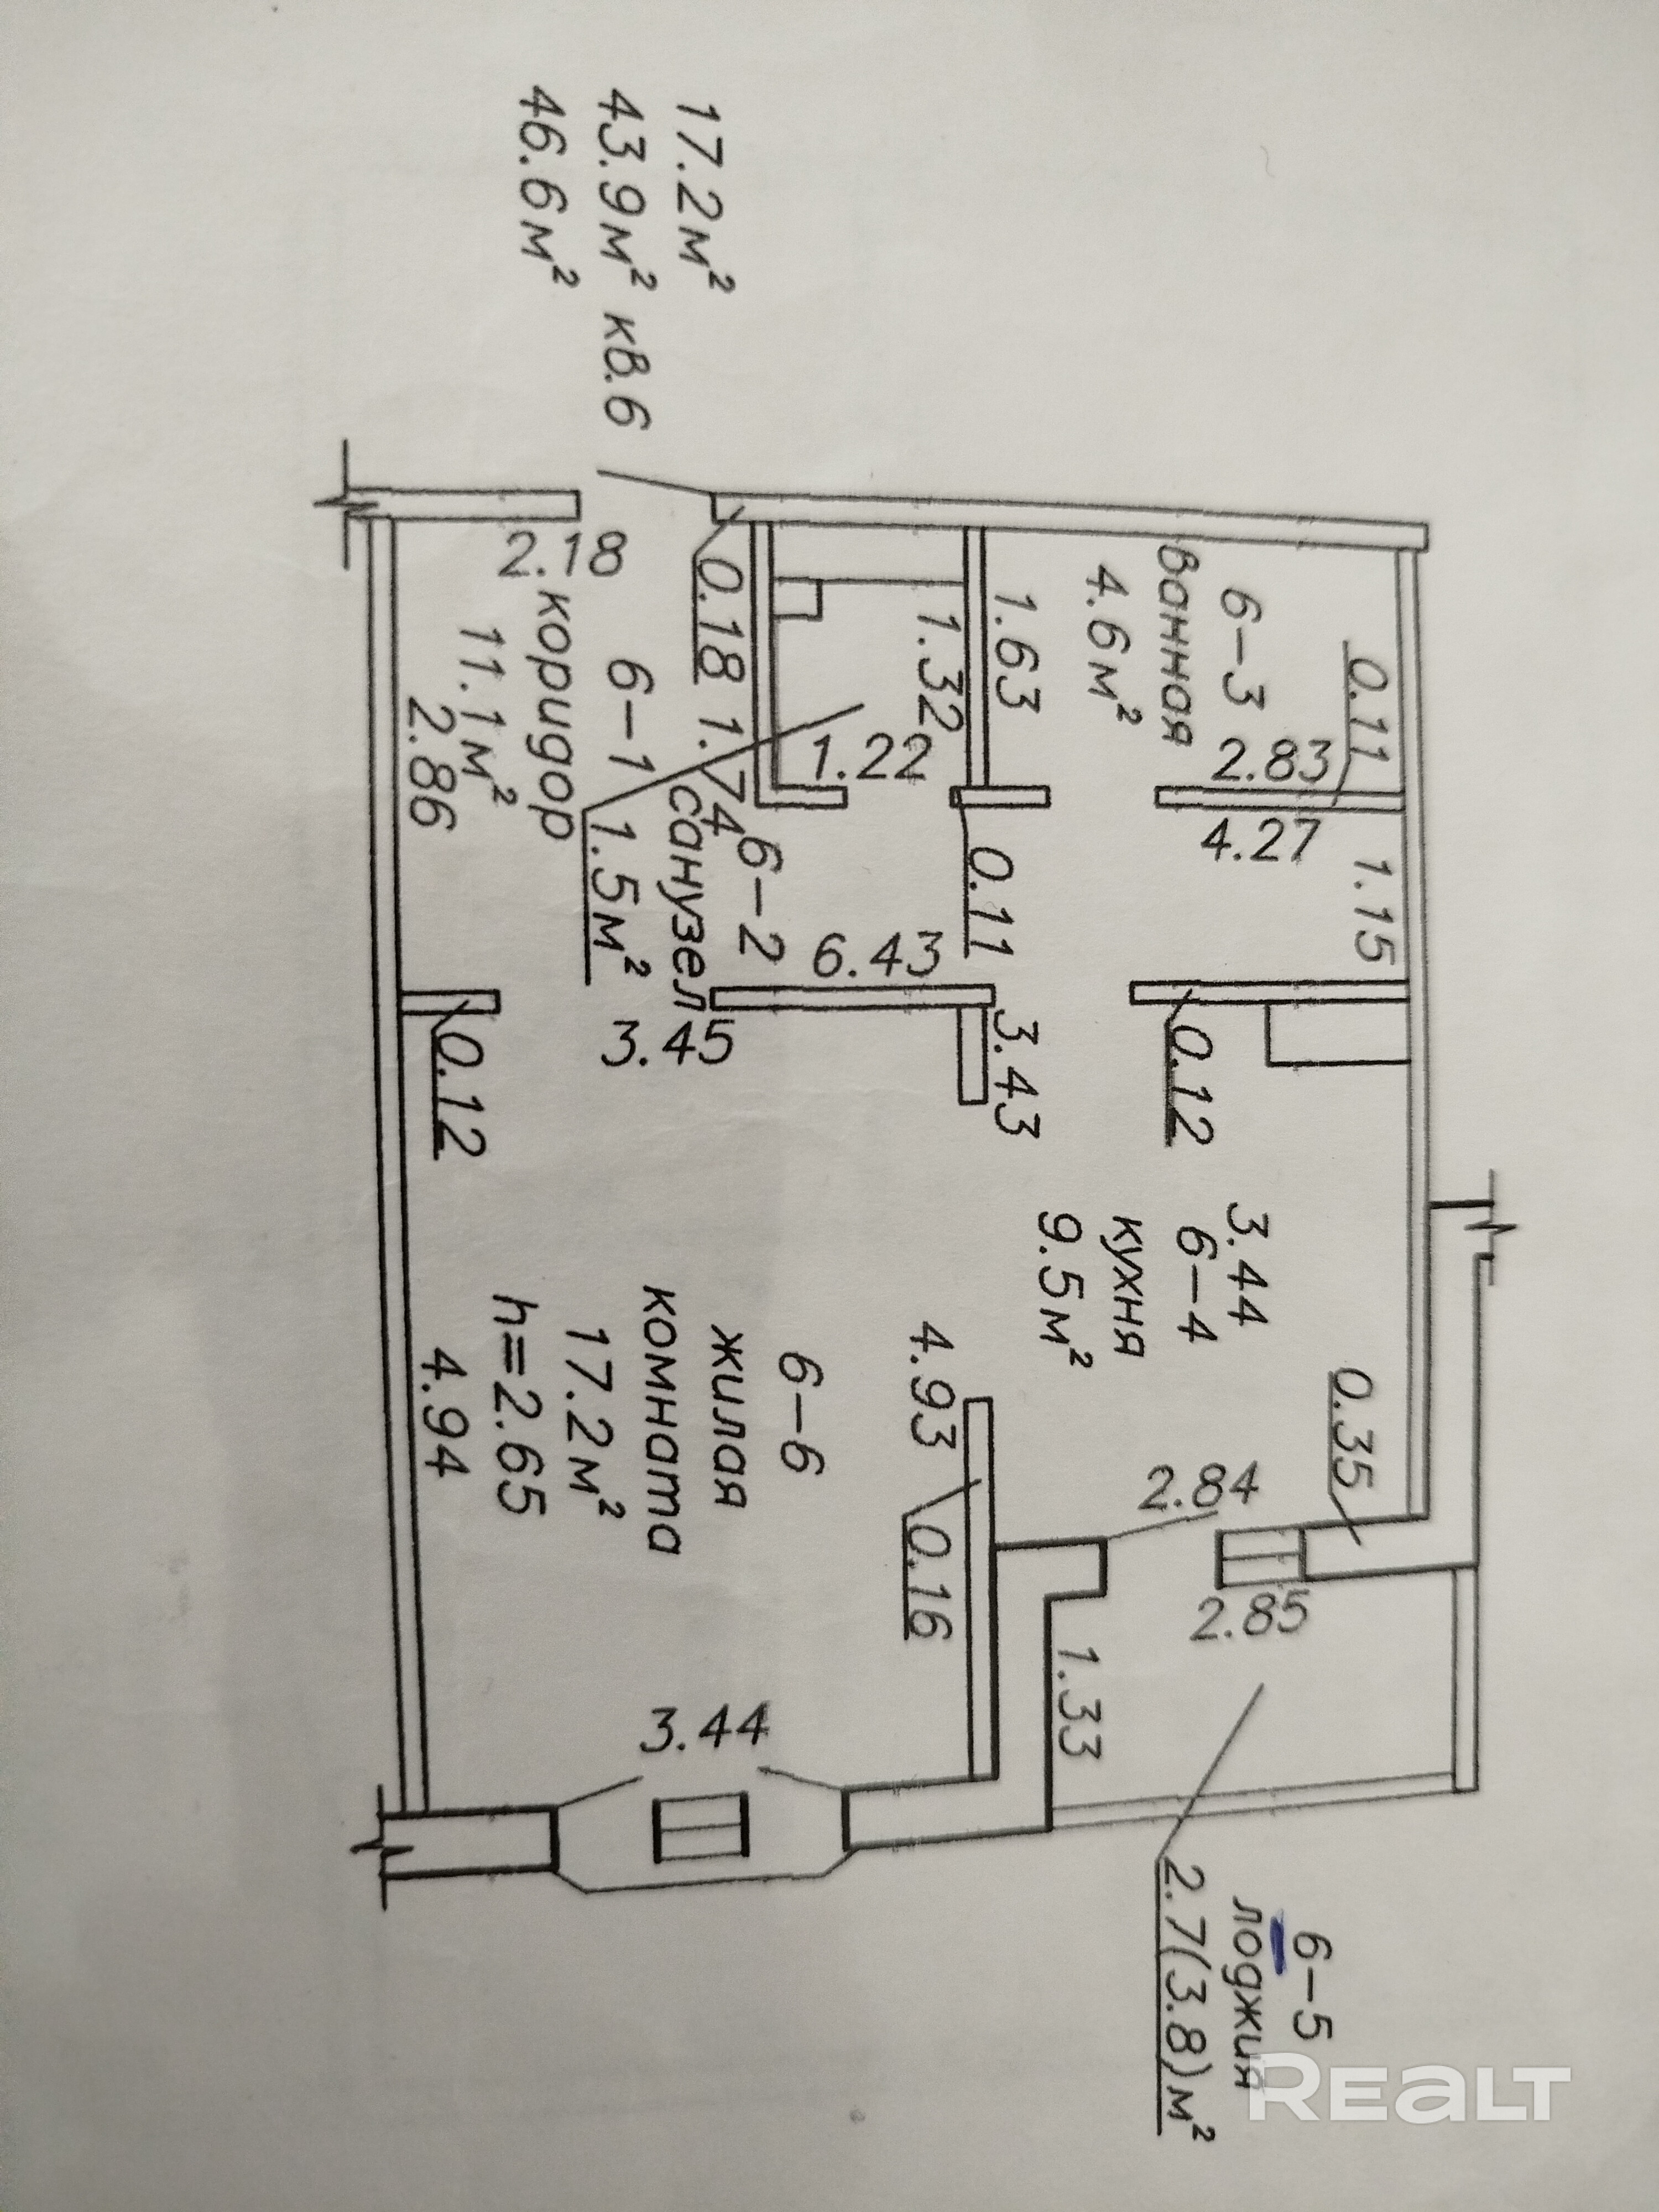 17.2м²
43.9м² кв.6
46.6м²
0.11
6-3
ванная
4.6м²
2.83
1.63
1.32
1.22
0.18
2.18
6-1
коридор
11.1м²
2.86
1.74
6-2
санузел
1.5м²
4.27
1.15
0.11
6.43
3.45
3.43
0.12
0.12
3.44
6-4
кухня
9.5м²
0.35
2.84
2.85
4.93
0.16
1.33
6-6
жилая
комната
17.2м²
h=2.65
4.94
3.44
6-5
лоджия
2.7(3.8)м²
REALT